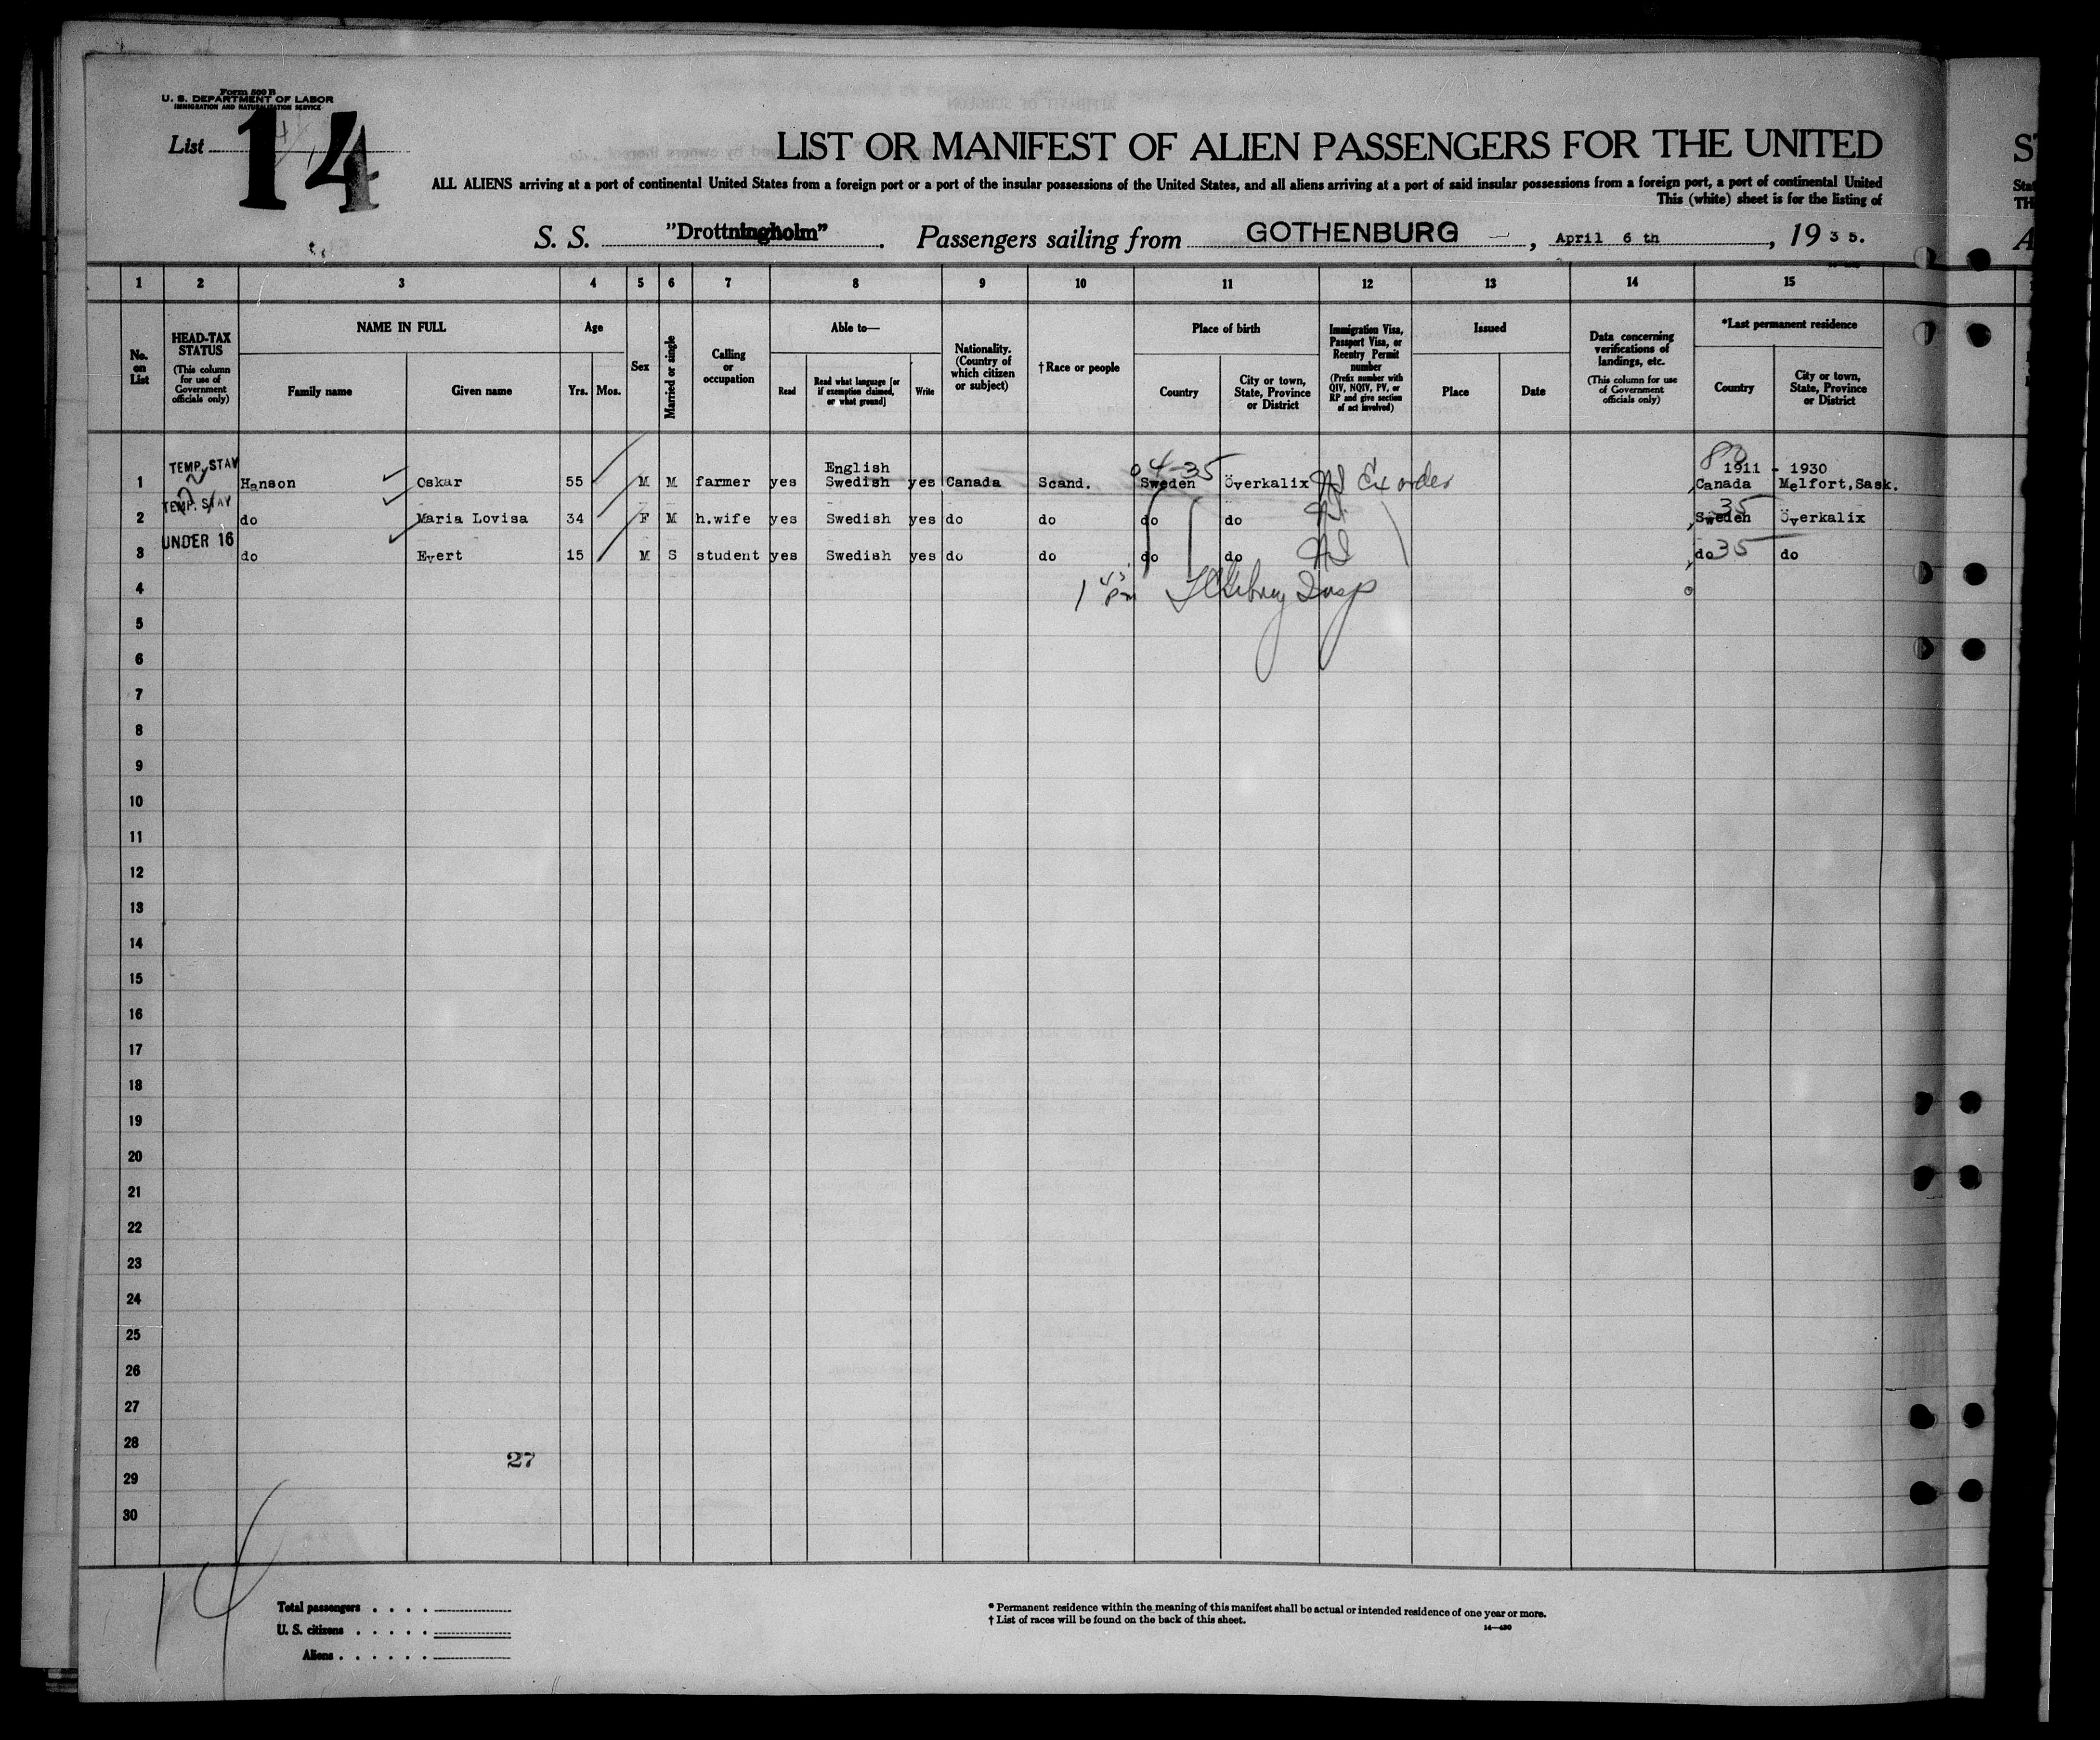 Form 500 B
U. S. DEPARTMENT OF LABOR
IMMIGRATION AND NATURALIZATION SERVICE
List 14
LIST OR MANIFEST OF ALIEN PASSENGERS FOR THE UNITED
ALL ALIENS arriving at a port of continental United States from a foreign port or a port of the insular possessions of the United States, and all aliens arriving at a port of said insular possessions from a foreign port, a port of continental United
This (white) sheet is for the listing of
S. S. "Drottningholm". Passengers sailing from GOTHENBURG, April 6 th, 1935.
1 2 3 4 5 6 7 8 9 10 11 12 13 14 15
No. on List
HEAD-TAX STATUS
(This column for use of Government officials only)
NAME IN FULL
Family name
Given name
Age
Yrs.
Mos.
Sex
Married or single
Calling or occupation
Able to—
Read
Read what language [or if exemption claimed, on what ground]
Write
Nationality. (Country of which citizen or subject)
†Race or people
Place of birth
Country
City or town, State, Province or District
Immigration Visa, Passport Visa, or Reentry Permit number
(Prefix number with QIV, NQIV, PV, or RP and give section of act involved)
Issued
Place
Date
Data concerning verifications of landings, etc.
(This column for use of Government officials only)
*Last permanent residence
Country
City or town, State, Province or District
TEMP. STAY English 04-35 1911 - 1930
1 Hanson Oskar 55 M M farmer yes Swedish yes Canada Scand. Sweden Överkalix Ex order Canada Melfort, Sask.
TEMP. STAY
2 do Maria Lovisa 34 F M h.wife yes Swedish yes do do do do Sweden 35 Överkalix
UNDER 16
3 do Evert 15 M S student yes Swedish yes do do do do do 35 do
4 1 45 pm Insp
5
6
7
8
9
10
11
12
13
14
15
16
17
18
19
20
21
22
23
24
25
26
27
28
27
29
30
14
Total passengers
U. S. citizens
Aliens
* Permanent residence within the meaning of this manifest shall be actual or intended residence of one year or more.
† List of races will be found on the back of this sheet.
14—480